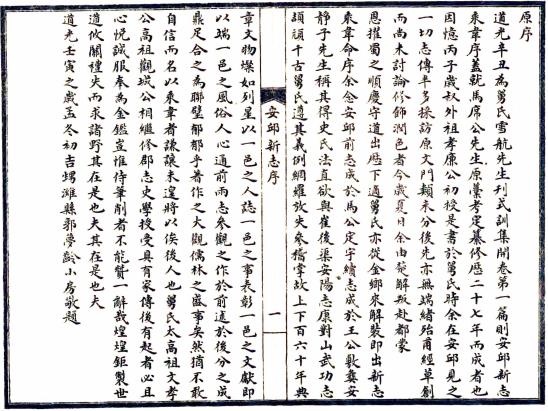 原序
道光辛丑為舅氏雪航先生刊式訓集開卷第一篇則安邱新志
乘韋序蓋就馬席公先生原藁考定纂修歷二十七年而成者也
因憶丙子歲叔外祖孝廉公初授是書於舅氏時余在安邱見之
一切志傳半多採訪原文門類未分後先亦無端緒殆甫經草創
而尚未討論修飾潤色者今歲夏日余由楚解叛赴都蒙
恩擢蜀之順慶守道出歷下適舅氏亦從金鄉來解裝即出新志
乘韋命序余念安邱前志成於馬公定宇續志成於王公斁甃安
靜子先生稱其得史氏法直欲與崔後渠安陽志康對山武功志
頡頏千古舅氏遵其義例網羅放失參稽掌故上下百六十年典
安邱新志序
一
章文物燦如列星以一邑之人誌一邑之事表彰一邑之文獻即
以端一邑之風俗人心通前而志參觀之作於前述於後分之成
鼎足合之為聯璧郁郁乎著作之大觀儒林之盛事矣然猶不敢
自信而名以乘韋者謙讓未遑將以俟後人也舅氏太高祖文孝
公高祖觀城公相繼修郡志史學授受具有家傳後有起者必且
心悅誠服奉為金鑑豈惟侍筆削者不能贊一辭哉煌煌鉅製世
道攸關禮失而求諸野其在是也夫其在是也夫
道光壬寅之歲孟冬初吉甥濰縣郭夢齡小房敬題